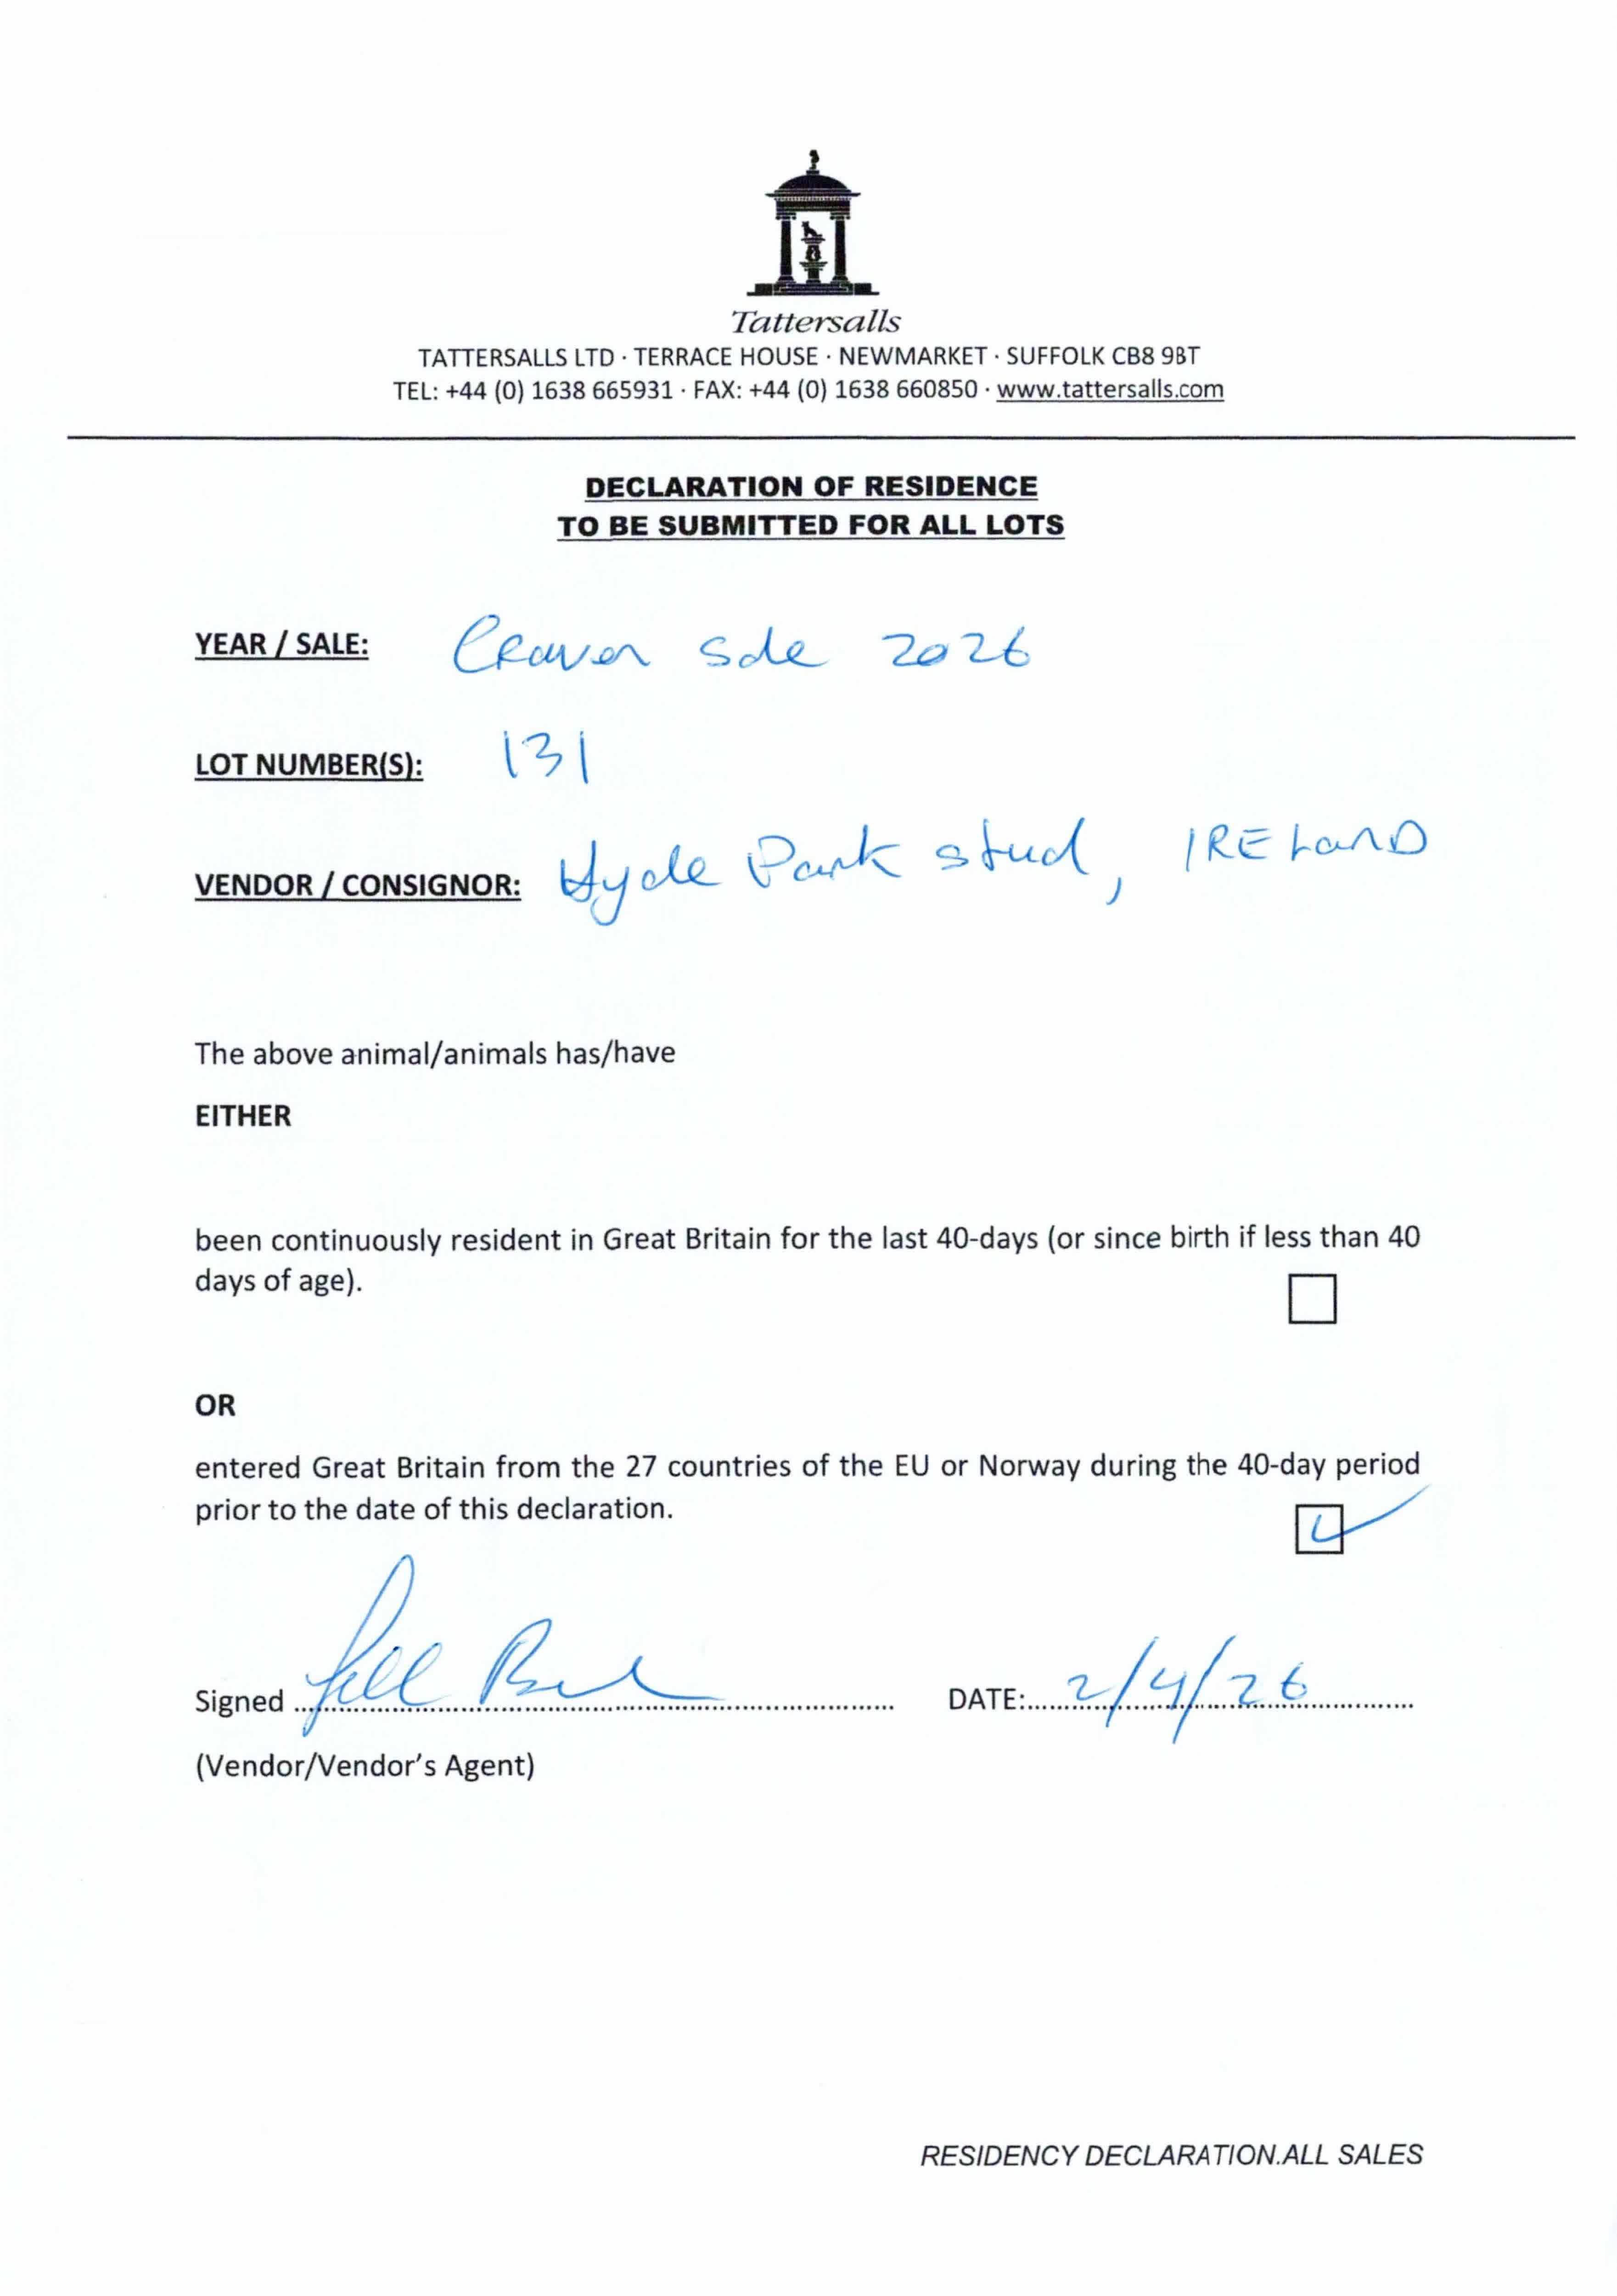 Tattersalls
TATTERSALLS LTD · TERRACE HOUSE · NEWMARKET · SUFFOLK CB8 9BT
TEL: +44 (0) 1638 665931 · FAX: +44 (0) 1638 660850 · www.tattersalls.com
DECLARATION OF RESIDENCE
TO BE SUBMITTED FOR ALL LOTS
YEAR / SALE: Craven Sale 2026
LOT NUMBER(S): 131
VENDOR / CONSIGNOR: Hyde Park stud, IRELAND
The above animal/animals has/have
EITHER
been continuously resident in Great Britain for the last 40-days (or since birth if less than 40
days of age).
OR
entered Great Britain from the 27 countries of the EU or Norway during the 40-day period
prior to the date of this declaration.
Signed DATE: 2/4/26
(Vendor/Vendor's Agent)
RESIDENCY DECLARATION.ALL SALES